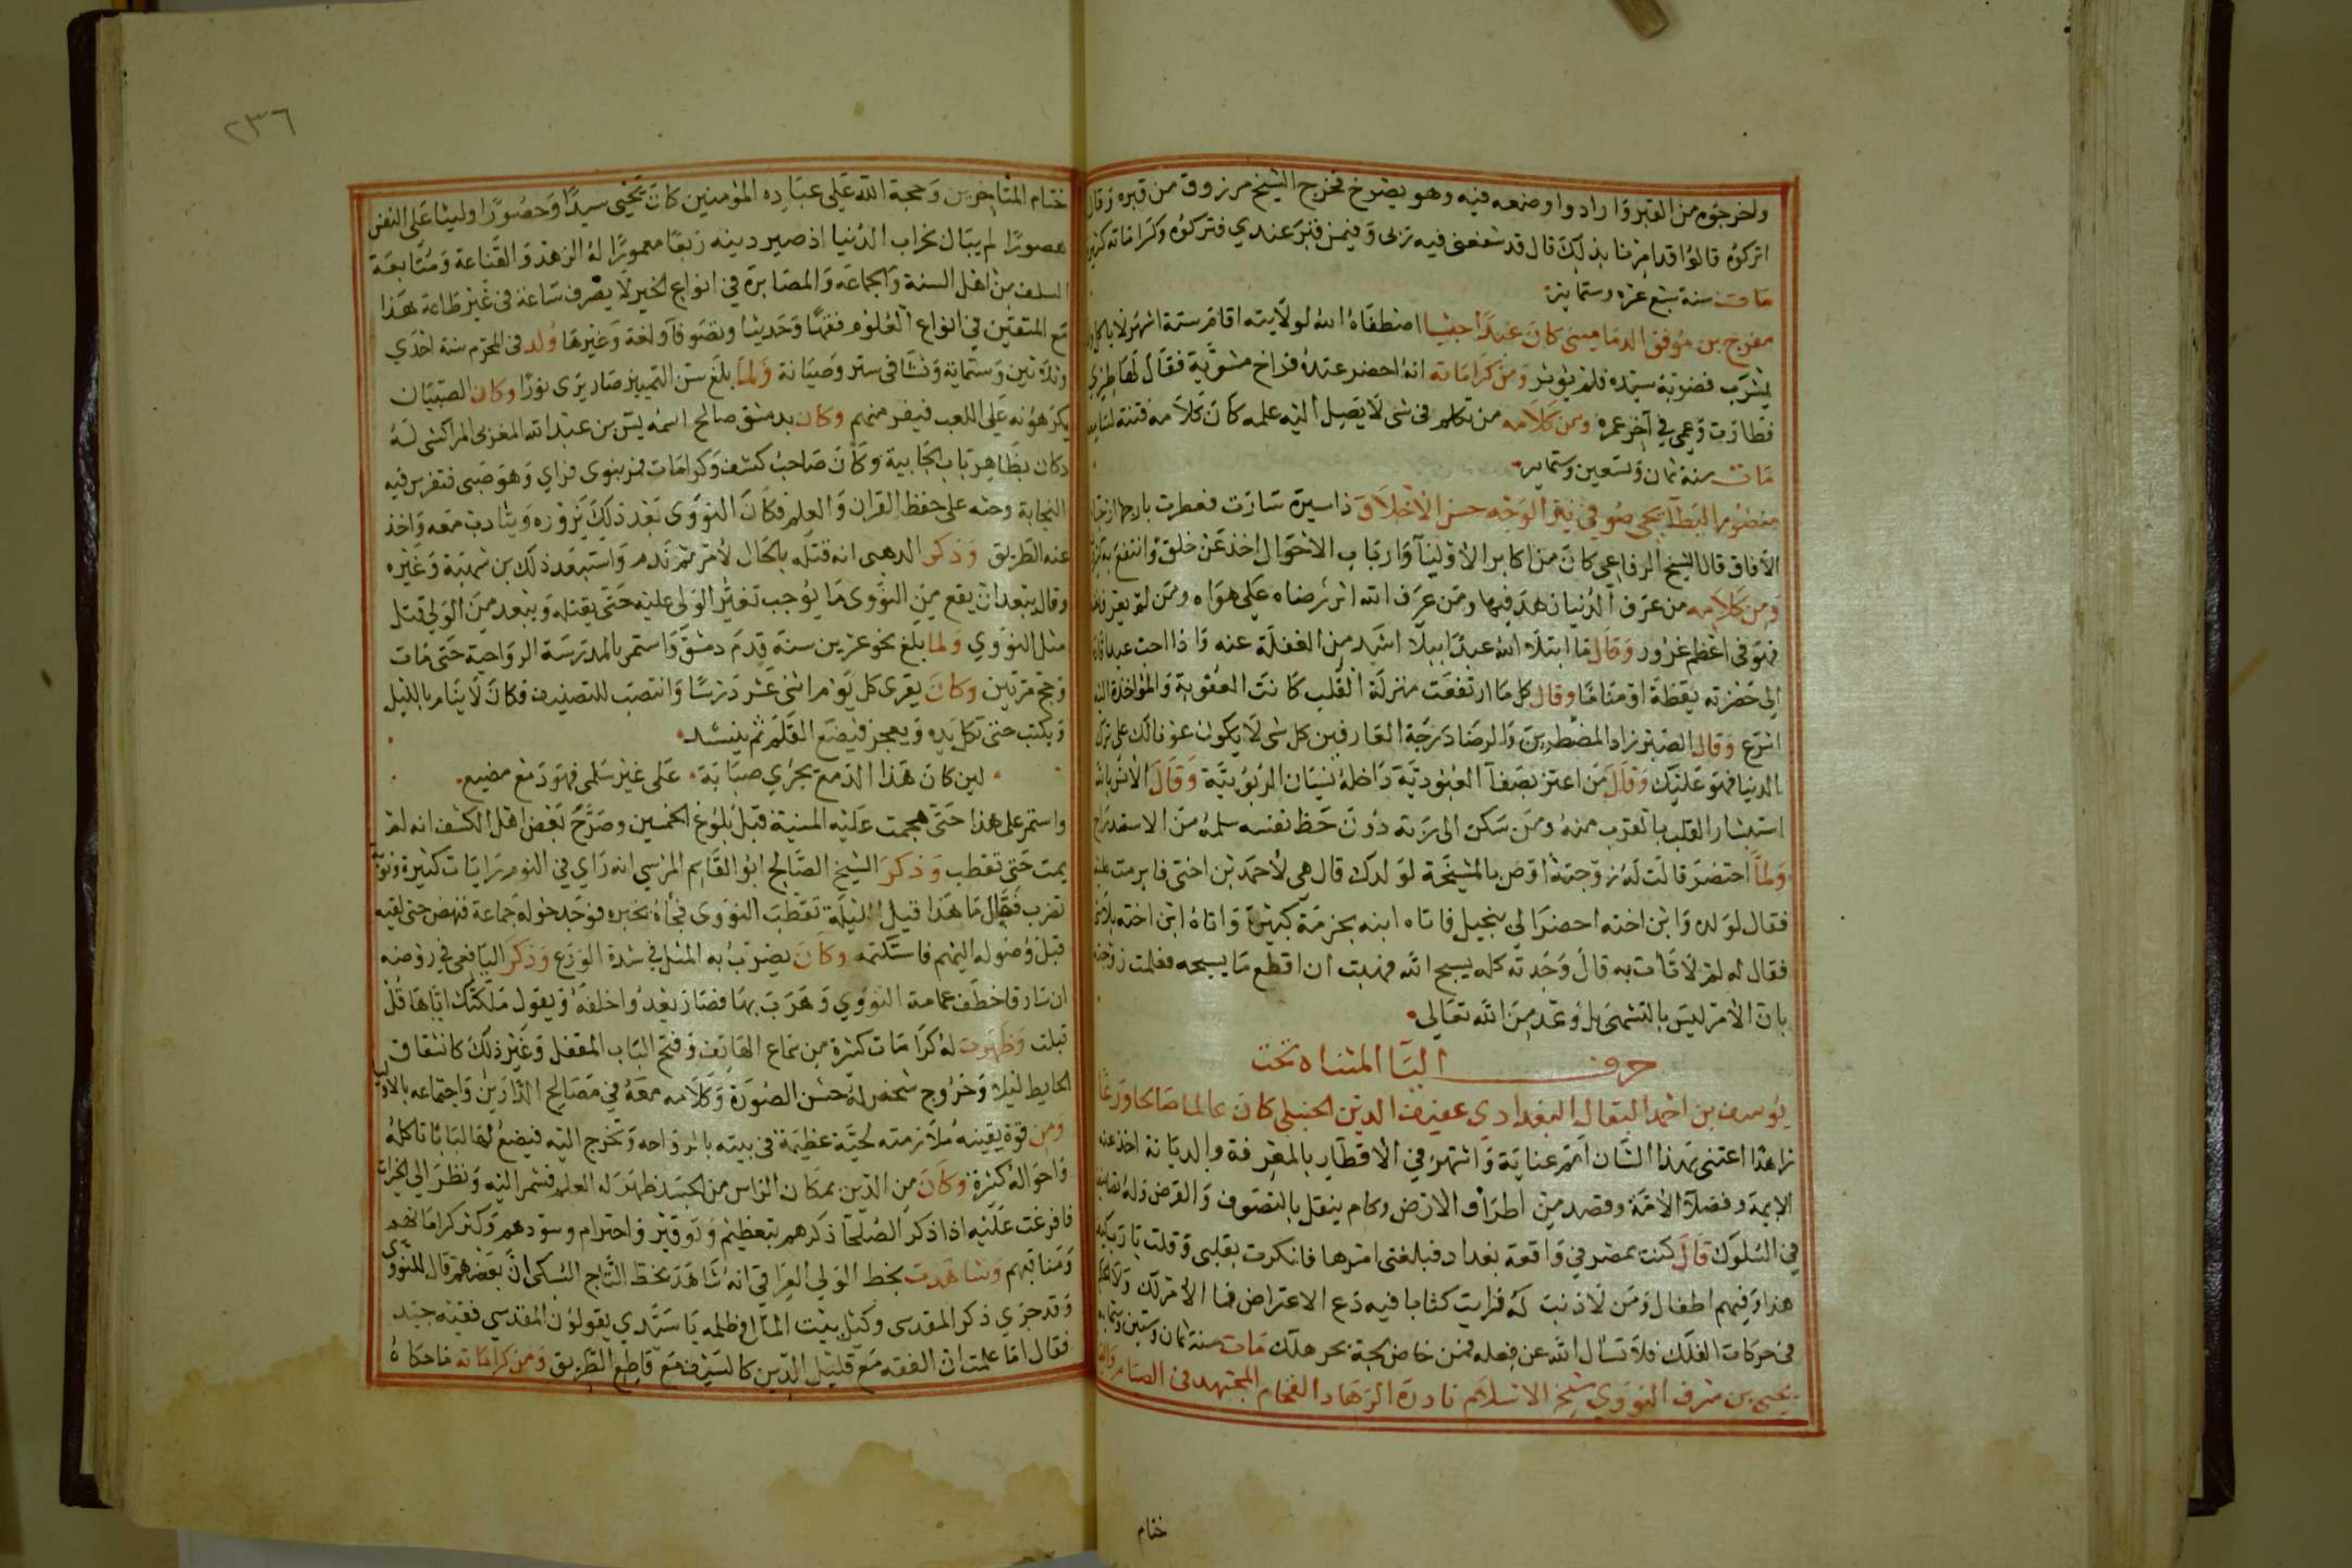 واخرجوه من القبر وارادوا وضعه فيه وهو يصرخ فخرج الشيخ مرزوق من قبره وقال
اتركوه قالوا قد امرنا بذلك قال قد شفعني فيه ربي وفيمن قبر عندي فتركوه وكراماته كثيرة
مات سنة سبع عشره وستماية
مفرج بن موفق الدماميني كان عبدا حبشيا اصطفاه الله لولايته اقام ستة اشهر لا ياكل ولا
يشرب فضربه سيده فلم يوثر ومن كراماته انه احضر عنده فراخ مشوية فقال لها طيري
فطارت وعمي في آخر عمره ومن كلامه من تكلم في شي لا يصل اليه علمه كان كلامه فتنة لسامعه
مات سنة ثمان وتسعين وستمايه
منصور البطايحي صوفي نير الوجه حسن الاخلاق ذا سيرة سارت فعطرت بارجها ارجاء
الافاق قال الشيخ الرفاعي كان من اكابر الاوليآ وارباب الاحوال اخذ عن خلق وانتفع به
ومن كلامه من عرف الدنيا زهد فيها ومن عرف الله اثر رضاه على هواه ومن لم يعرف نفسه
فهو في اعظم غرور وقال ما ابتلا الله عبدا ببلا اشد من الغفلة عنه واذا احب عبدا
الى حضرته يقظة او مناما وقال كل ما ارتفعت منزلة القلب كانت العقوبة والمؤاخذة اليه
اسرع وقال الصبر زاد المضطرين والرضا درجة العارفين كل شي لا يكون عونا لك على ترك
الدنيا فهو عليك وقال من اعتز بصفآ العبودية داخله نسيان الربوبية وقال الانس بالله
استبشار القلب بالقرب منه ومن سكن الى ربه دون حظ نفسه سلمه من الاستدراج
ولما احتضر قالت له زوجته اوص بالمشيخة لولدك قال هي لاحمد بن اختي فابرمت عليه
فقال لولده وابن اخته احضرا لي نجيل فاتاه ابنه بحزمة كبيرة واتاه ابن اخته بلا شي
فقال له لم لا تات به قال وجدته كله يسبح الله فهبت ان اقطع ما يسبحه فعلمت زوجته
بان الامر ليس بالتشهي بل وعد من الله تعالى
حرف اليا المثناه تحت
يوسف بن احمد البقال البغدادي عفيف الدين الحنبلي كان عالما صالحا ورعا
زاهدا اعتنى بهذا الشان اتم عناية واشتهر في الاقطار بالمعرفة والديانة اخذ عنه
الايمة وفضلآ الامة وقصد من اطراف الارض وكان ينقل بالتصوف والقرض وله تصانيف
في السلوك قال كنت بمصر في واقعة بغداد فبلغني امرها فانكرت بقلبي وقلت يا رب كيف
هذا وفيهم اطفال ومن لا ذنب له فرايت كتابا فيه دع الاعتراض فما الامر لك ولا الحكم
في حركات الفلك فلا تسال الله عن فعله فمن خاض لجة بحر هلك مات سنة ثمان وستين وستمايه
يحيى بن شرف النووي شيخ الاسلام نادرة الزهاد الفخام المجتهد في الصيام والقيام
ختام
٢٣٦
ختام المتاخرين وحجة الله على عباده المؤمنين كان يحيى سيدا وحصورا وليثا على النفس
هصورا لم يبال بخراب الدنيا اذ صير دينه ربعا معمورا له الزهد والقناعة ومتابعة
السلف من اهل السنة والجماعه والمصابرة في انواع الخير لا يصرف ساعة في غير طاعة هذا
مع المتفنن في انواع العلوم فقها وحديثا وتصوفا ولغة وغيرها ولد في المحرم سنة احدي
وثلاثين وستماية ونشا في ستر وصيانة ولما بلغ سن التمييز صار يرى نورا وكان الصبيان
يكرهونه على اللعب فيفر منهم وكان بدمشق صالح اسمه يس بن عبد الله المغربي المراكشي له
دكان بظاهر باب الجابية وكان صاحب كشف وكرامات فمر بنوى فراي وهو صبي فتفرس فيه
النجابة وحثه على حفظ القران والعلم فكان النووي بعد ذلك يزوره ويتادب معه واخذ
عنه الطريق وذكر الذهبي انه قتله بالحال لامر ثم ندم واستبعد ذلك بن شهبة وغيره
وقال يبعد ان يقع من النووي ما يوجب تغير الولي عليه حتى يقتله ويبعد من الولي قتل
مثل النووي ولما بلغ نحو عشرين سنة قدم دمشق واستمر بالمدرسة الرواحية حتى مات
وحج مرتين وكان يقري كل يوم اثنى عشر درسا وانتصب للتصنيف فكان لا ينام بالليل
ويكتب حتى تكل يده ويعجز فيضع القلم ثم ينشد
لين كان هذا الدمع يجري صبابة على غير سلمى فهو دمع مضيع
واستمر على هذا حتى هجمت عليه المنية قبل بلوغ الخمسين وصرح بعض اهل الكشف انه لم
يمت حتى تقطب وذكر الشيخ الصالح ابو القاسم المزي انه راي في النوم رايات كثيرة ونوبة
تضرب فقال ما هذا قيل الليلة تقطب النووي فجاه بخبره فوجد حوله جماعة فنهض حتى لقيه
قبل وصوله اليهم فاستكتمه وكان يضرب به المثل في شدة الورع وذكر اليافعي في روضه
ان سارقا خطف عمامة النووي وهرب بها فصار يعدوا خلفه ويقول ملكتك اياها قل
قبلت وظهرت له كرامات كثيرة من سماع الهاتف وفتح الباب المقفل وغير ذلك كانشقاق
الحايط ليلا وخروج شخص له حسن الصورة وكلامه معه في مصالح الدارين واجتماعه بالاوليا
ومن قوة يقينه ملازمته لحية عظيمة في بيته بالرواحه وتخرج اليه فيضع لها لبابا تاكله
واحواله كثيرة وكان من الدين بمكان الراس من الجسد ظهر له العلم فشمر اليه ونظر الى الخيرات
فافرغت عليه اذا ذكر الصلحا ذكرهم بتعظيم وتوقير واحترام وسودهم وكثر كراماتهم
ومناقبهم وشاهدت بخط الولي العراقي انه شاهد بخط التاج السبكي ان بعضهم قال للنووي
وقد جري ذكر المقدسي وكيل بيت المال وظلمه يا سيدي يقولون المقدسي فقيه جيد
فقال اما علمت ان الفقه مع قليل الدين كالسيف مع قاطع الطريق ومن كراماته ما حكاه